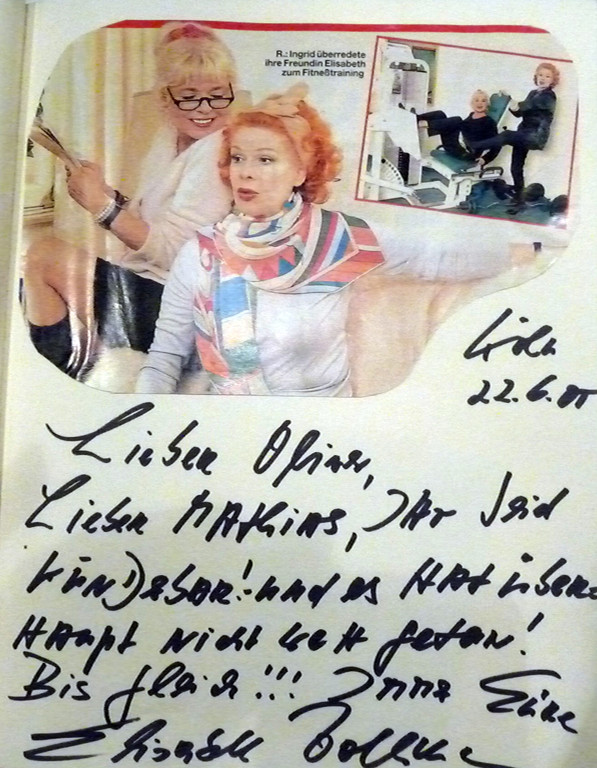 R.: Ingrid überredete
ihre Freundin Elisabeth
zum Fitneßtraining
Köln
Lieber Oliver,
Lieber MAthias, Ihr seid
wunDerbar! - und es HAt über
HAupt nicht weh getan!
Bis gleich!!! Immer Eure
Elisabeth Volkmann